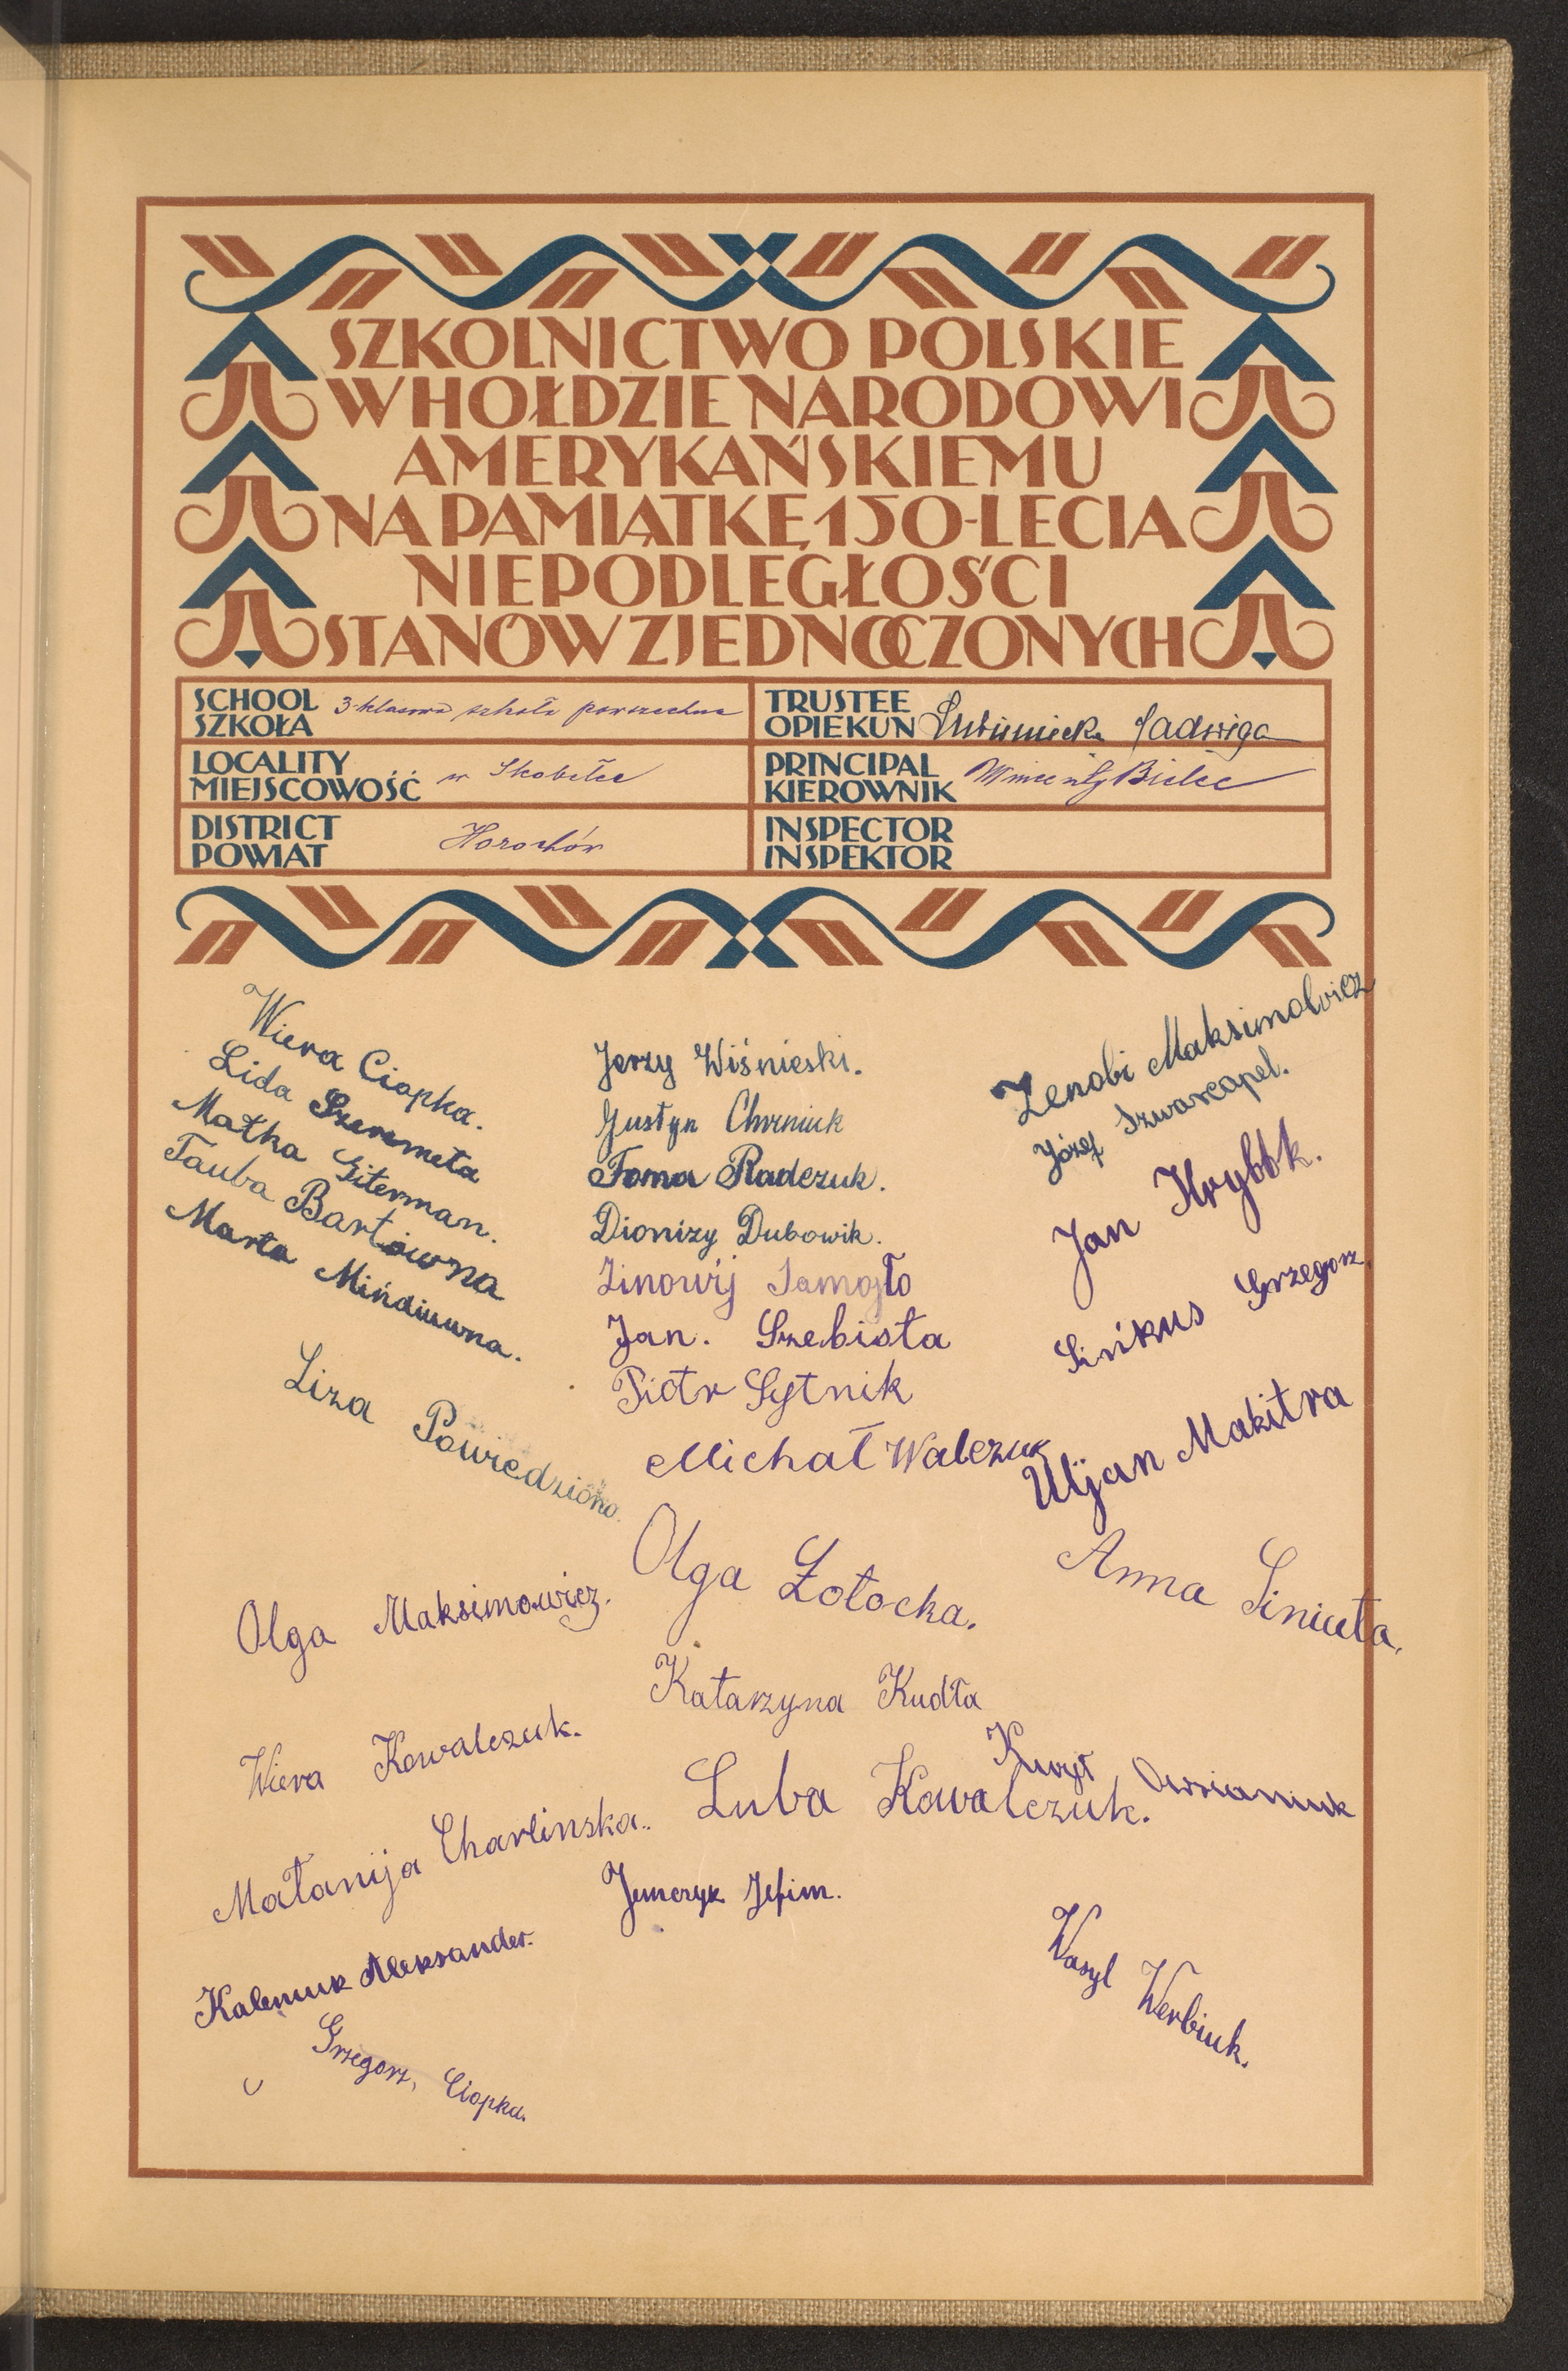 SZKOLNICTWO POLSKIE
W HOŁDZIE NARODOWI
AMERYKAŃSKIEMU
NA PAMIĄTKĘ 150-LECIA
NIEPODLEGŁOŚCI
STANÓW ZJEDNOCZONYCH
SCHOOL
SZKOŁA
3-klasowa szkoła powszechna
TRUSTEE
OPIEKUN
Jadwiga
LOCALITY
MIEJSCOWOŚĆ
w Skobełce
PRINCIPAL
KIEROWNIK
Wincenty Bielec
DISTRICT
POWIAT
Horochów
INSPECTOR
INSPEKTOR
Wiera Ciopka.
Lida Szeremeta
Matka Giterman.
Tauba Bartówna
Marta Mińdiuwna.
Liza Powiedziono.
Olga Maksimowicz.
Wiera Kowalczuk.
Małanija Charlinska.
Kalemuk Aleksander.
Grzegorz, Ciopka.
Jerzy Wiśnieski.
Justyn Chrniuk
Foma Radczuk.
Dionizy Dubowik.
Zinowij Samojło
Jan. Szebista
Piotr Sytnik
Michał Walczuk
Olga Łotocka.
Katarzyna Kudła
Luba Kowalczuk.
Jefim.
Zenobi Maksimowicz
Józef Szwarcapel.
Jan
Sińkus Grzegorz.
Uljan Makitra
Anna Siniuta.
Owsianiuk
Wasyl Werbiuk.